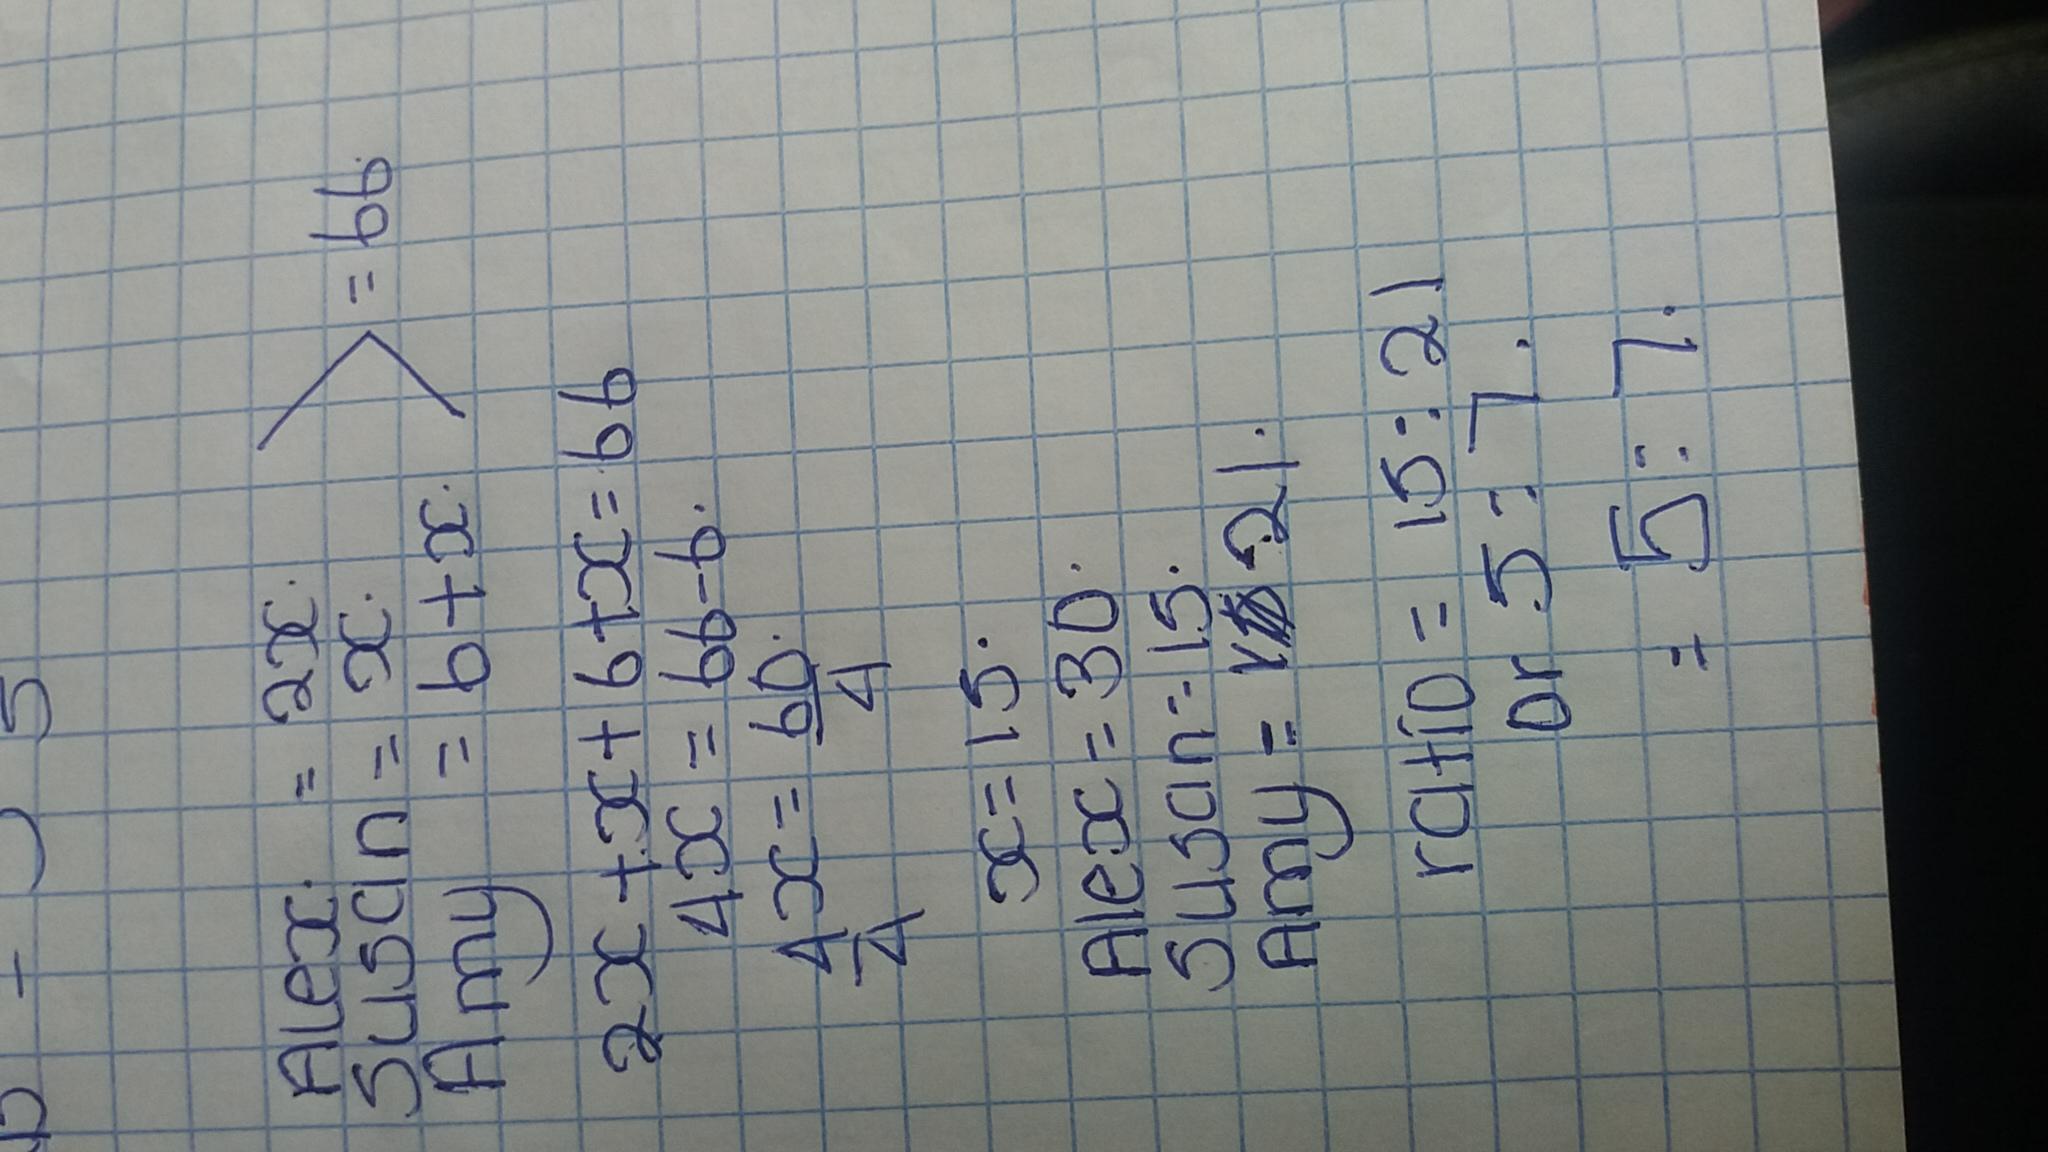 Alex. = 2x.
Susan = x. = 66.
Amy = 6+x.
2x+x+6+x=66
4x = 66-6.
4x = 60.
4 4
x=15.
Alex=30.
Susan=15.
Amy = 21.
ratio = 15:21
or 5:7.
= 5:7.